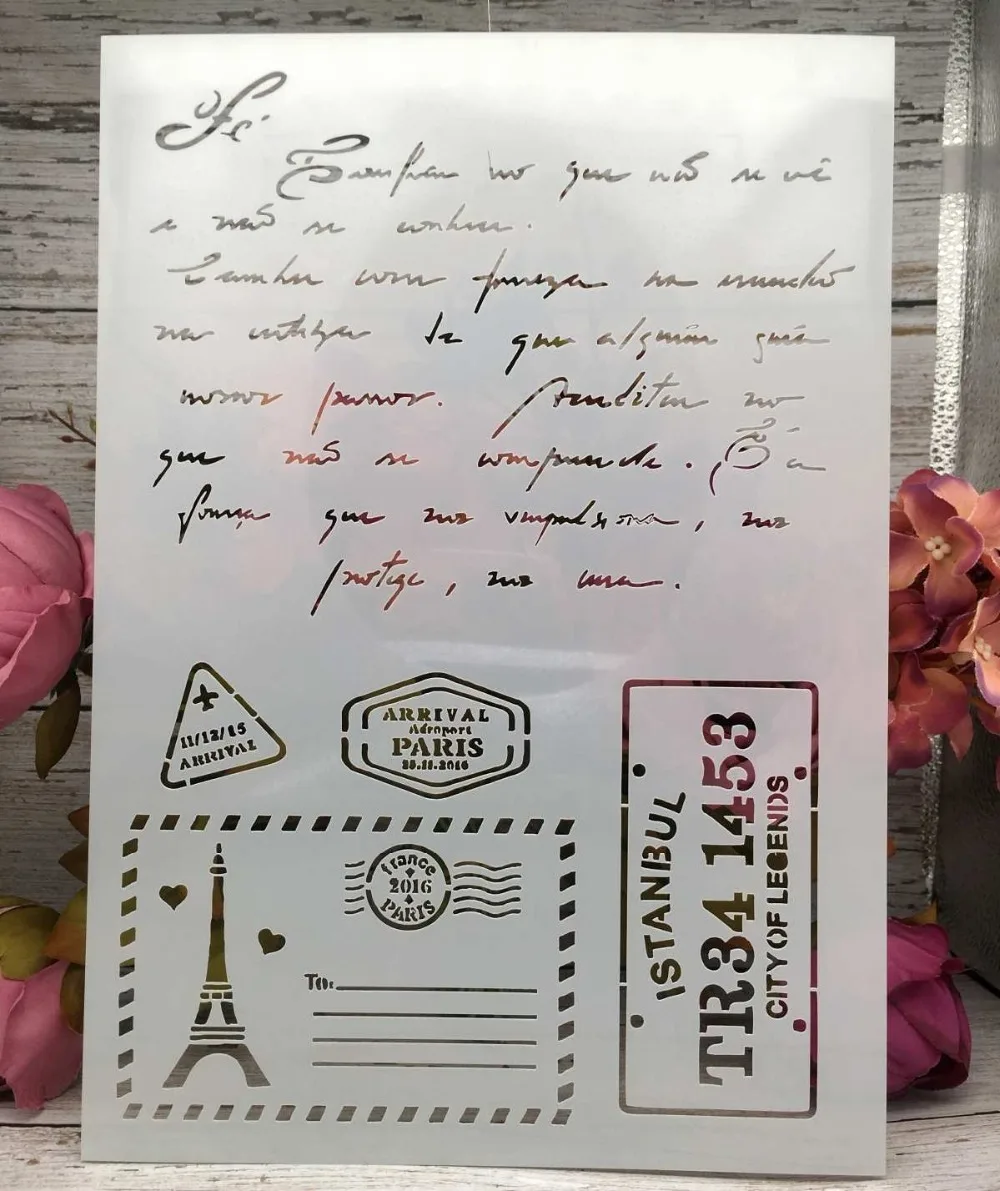 Fé
Confiar no que não se vê
e não se conhece.
Caminhar com firmeza na escuridão
na certeza de que alguém guia
nossos passos. Acreditar no
que não se compreende. É a
força que nos impulsiona, nos
protege, nos une.
11/12/15
ARRIVAL
ARRIVAL
Aéroport
PARIS
25.11.2016
france
2016
PARIS
To:
ISTANBUL
TR34 1453
CITY OF LEGENDS